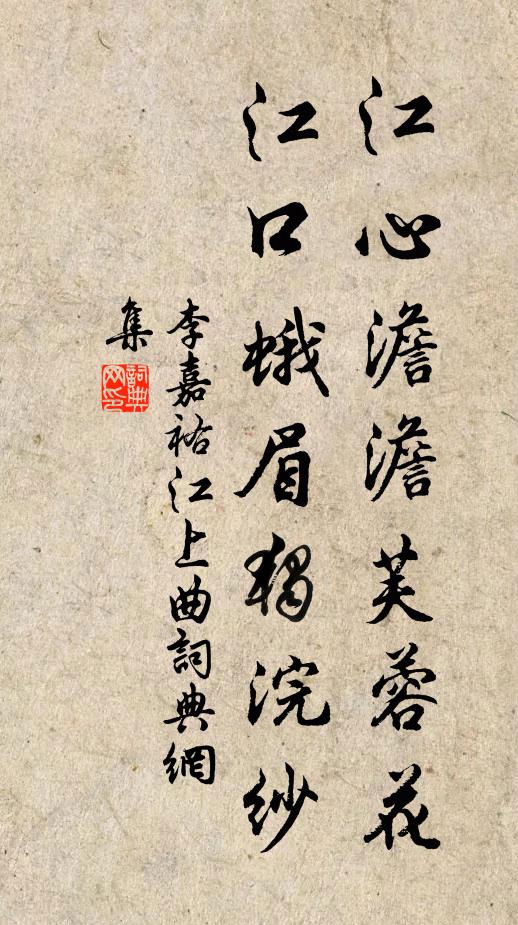 江心澹澹芙蓉花
江口蛾眉獨浣紗
李嘉祐江上曲詞典網
集
詞典
网印